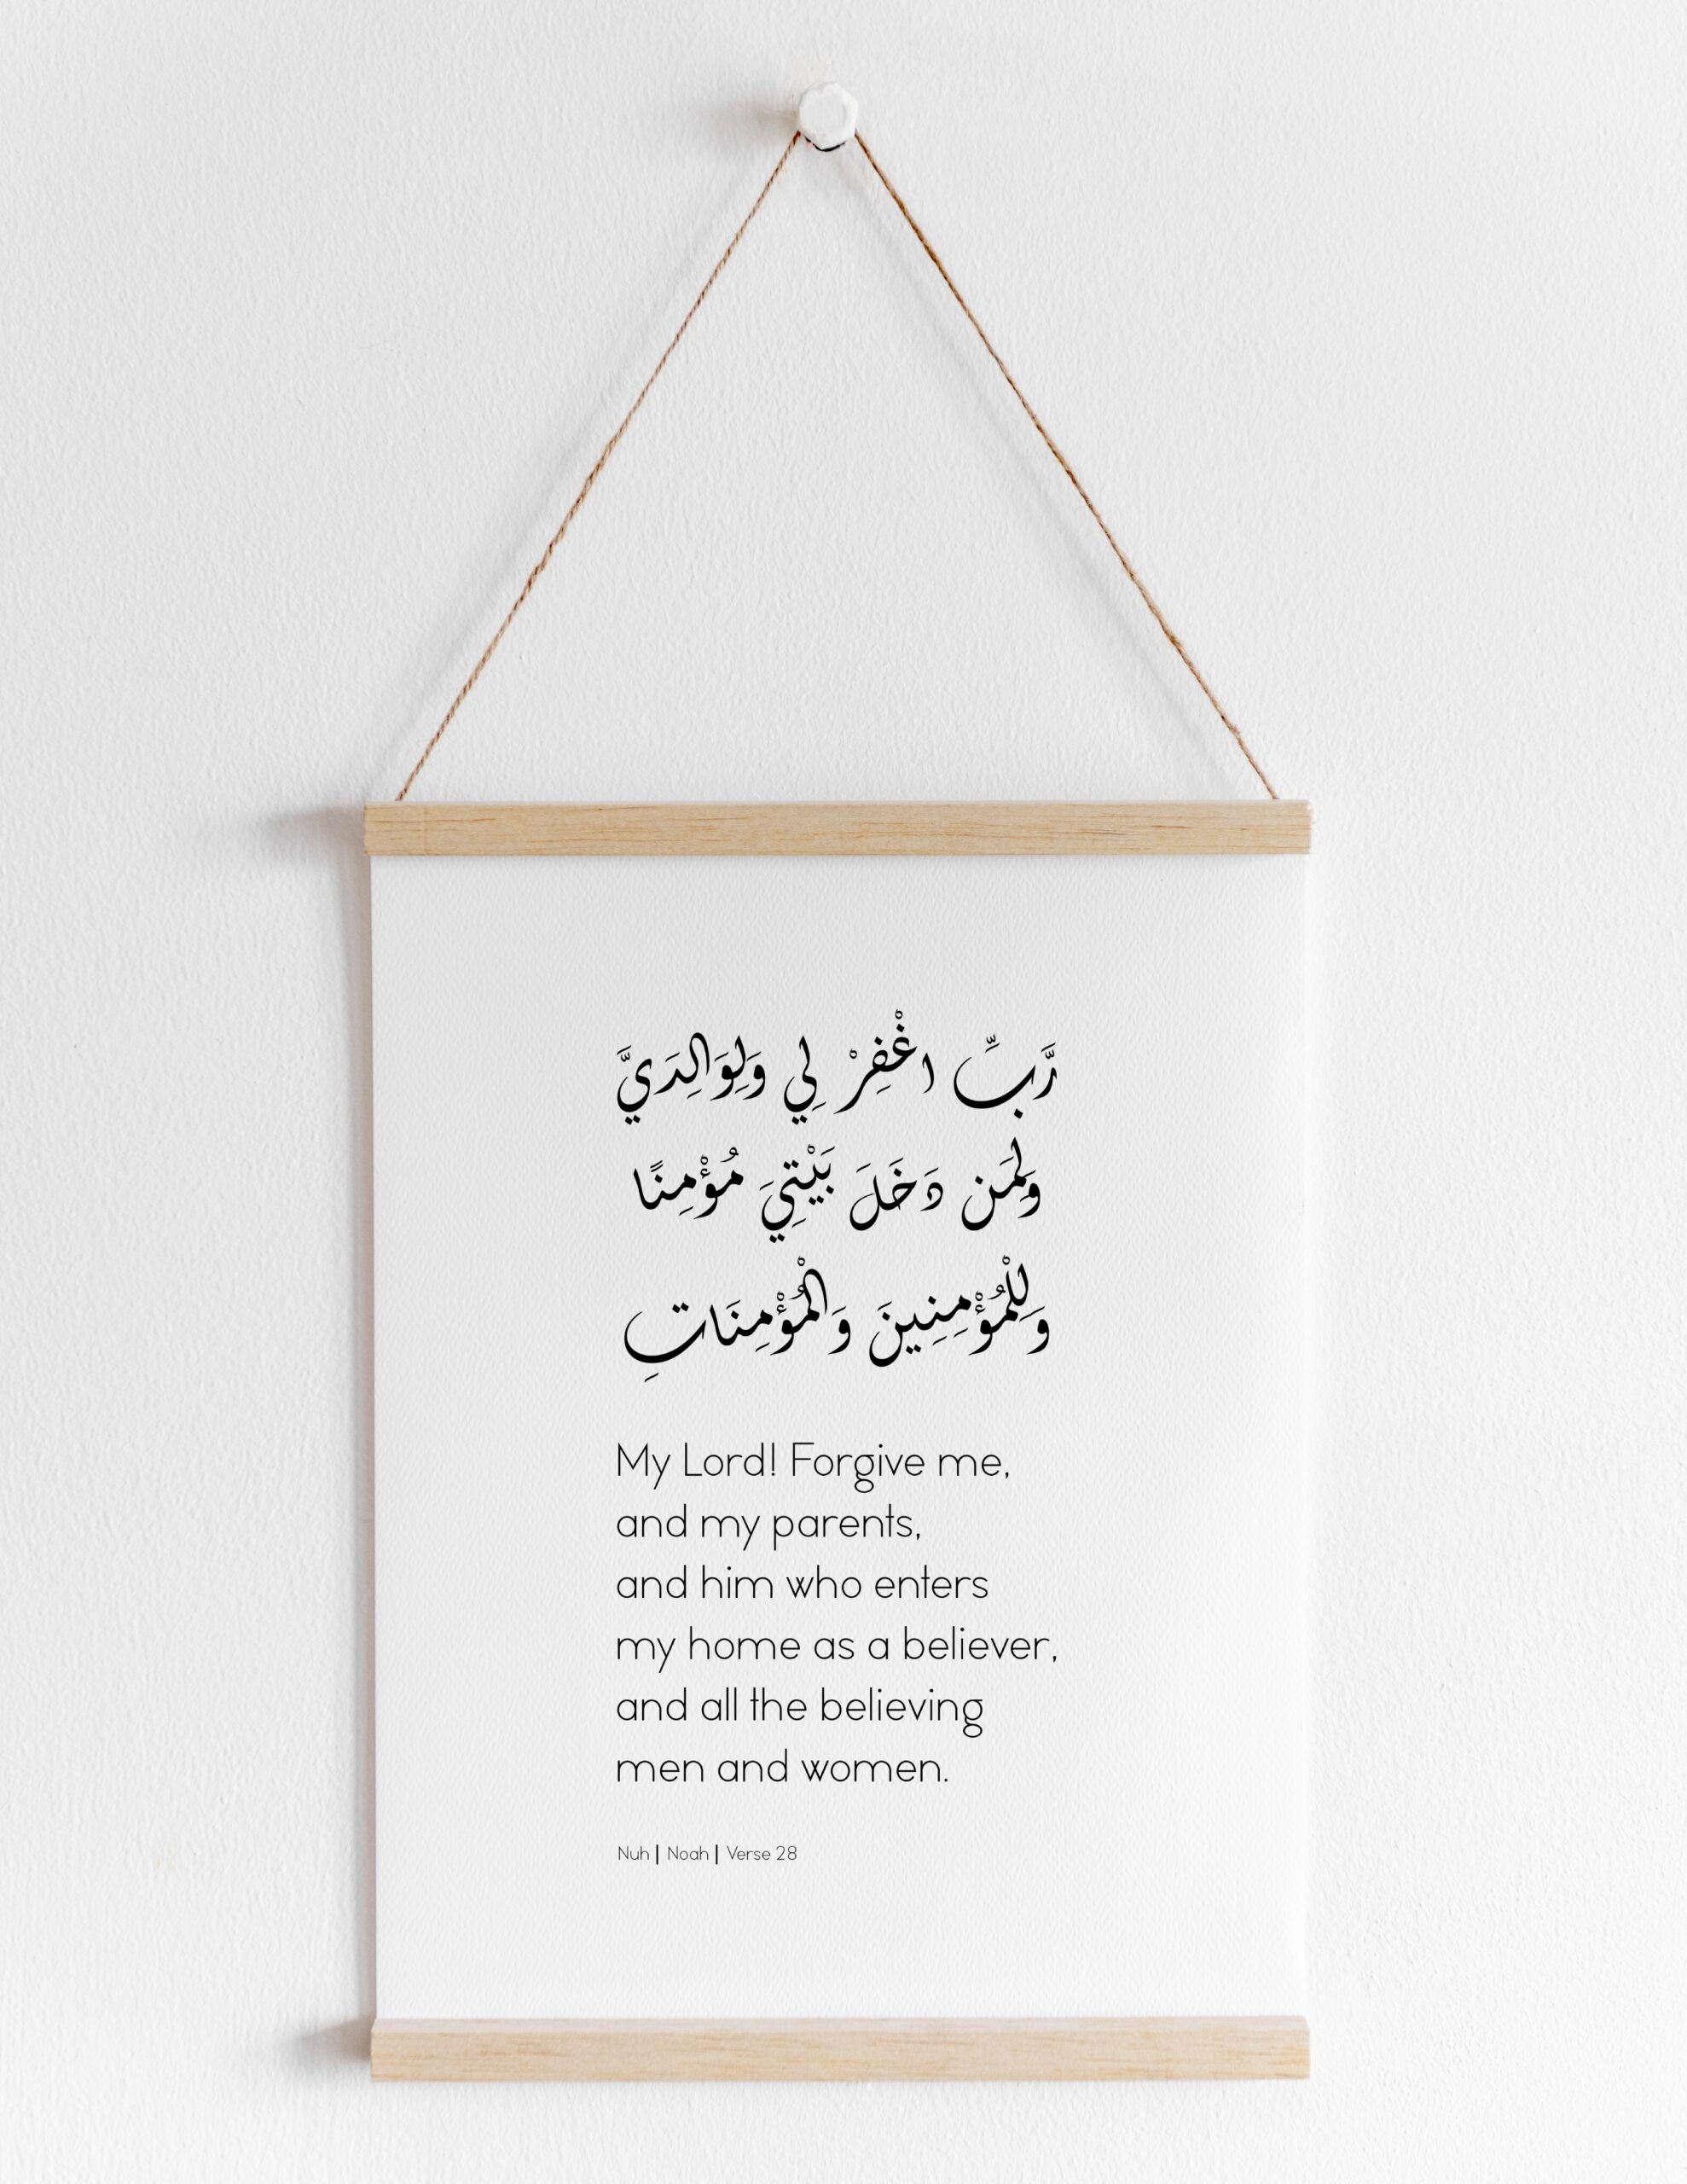 رَّبِّ اغْفِرْ لِي وَلِوَالِدَيَّ
وَلِمَن دَخَلَ بَيْتِيَ مُؤْمِنًا
وَلِلْمُؤْمِنِينَ وَالْمُؤْمِنَاتِ
My Lord! Forgive me,
and my parents,
and him who enters
my home as a believer,
and all the believing
men and women.
Nuh | Noah | Verse 28